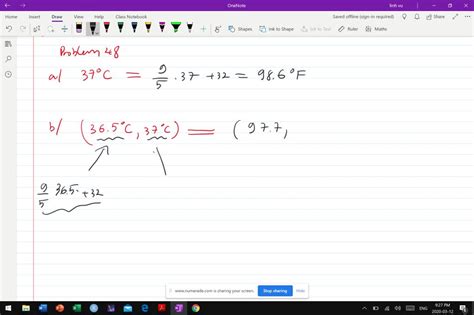 OneNote
linh vu
File Home Insert Draw View Help Class Notebook
Saved offline (sign-in required)
Shapes Ink to Shape Ink to Text Math
Problem 48
a/ 37°C = 9/5 . 37 + 32 = 98.6°F
b/ (36.5°C, 37°C) = (97.7,
9/5 36.5 + 32
www.numerade.com is sharing your screen. Stop sharing Hide
9:27 PM
2020-03-12